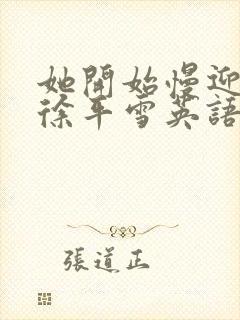 她開始慢迎
徐平雪英語
張道正